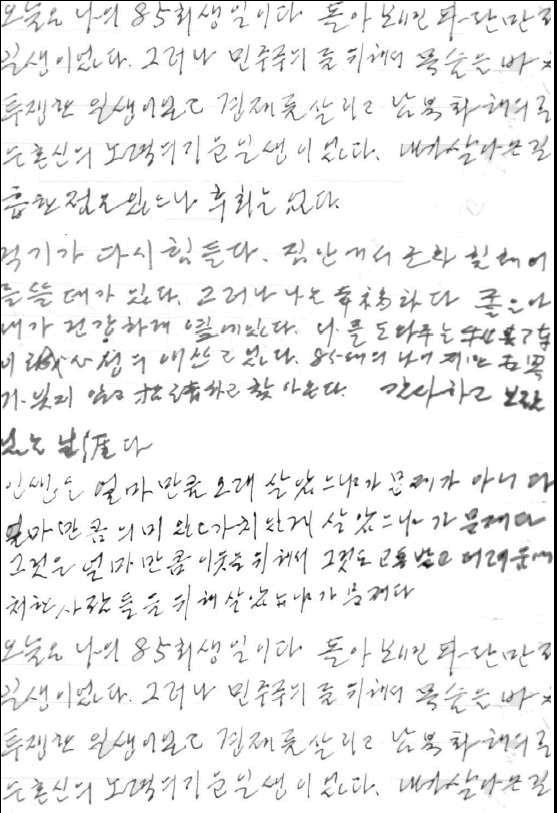 오늘은 나의 85회 생일이다 돌아보면 파란만
일생이었다. 그러나 민주주의를 위해서 목숨을 바
투쟁한 일생이었고 경제를 살리고 남북 화해의
는 혼신의 노력을 기울인 일생이었다. 내가 살아온 길
흡한 점은 있으나 후회는 없다.
걷기가 다시 힘들다. 집안에서조차 휠체어
를 쓸 때가 있다. 그러나 나는 幸福하다 좋은 아
내가 건강하게 옆에 있다. 나를 도와주는
사정의 애쓰고 있다. 85세의 나이지만
가 잊지 않고 하고 찾아온다. 감사하고 보람
있는 生涯다
인생은 얼마만큼 오래 살았느냐가 문제가 아니다
얼마만큼 의미 있고 가치 있게 살았느냐가 문제다
그것은 얼마만큼 이웃을 위해서 그것도 고통받고 어려움에
처한 사람들을 위해 살았느냐가 문제다
오늘은 나의 85회 생일이다 돌아보면 파란만
일생이었다. 그러나 민주주의를 위해서 목숨을 바
투쟁한 일생이었고 경제를 살리고 남북 화해의
는 혼신의 노력을 기울인 일생이었다. 내가 살아온 길